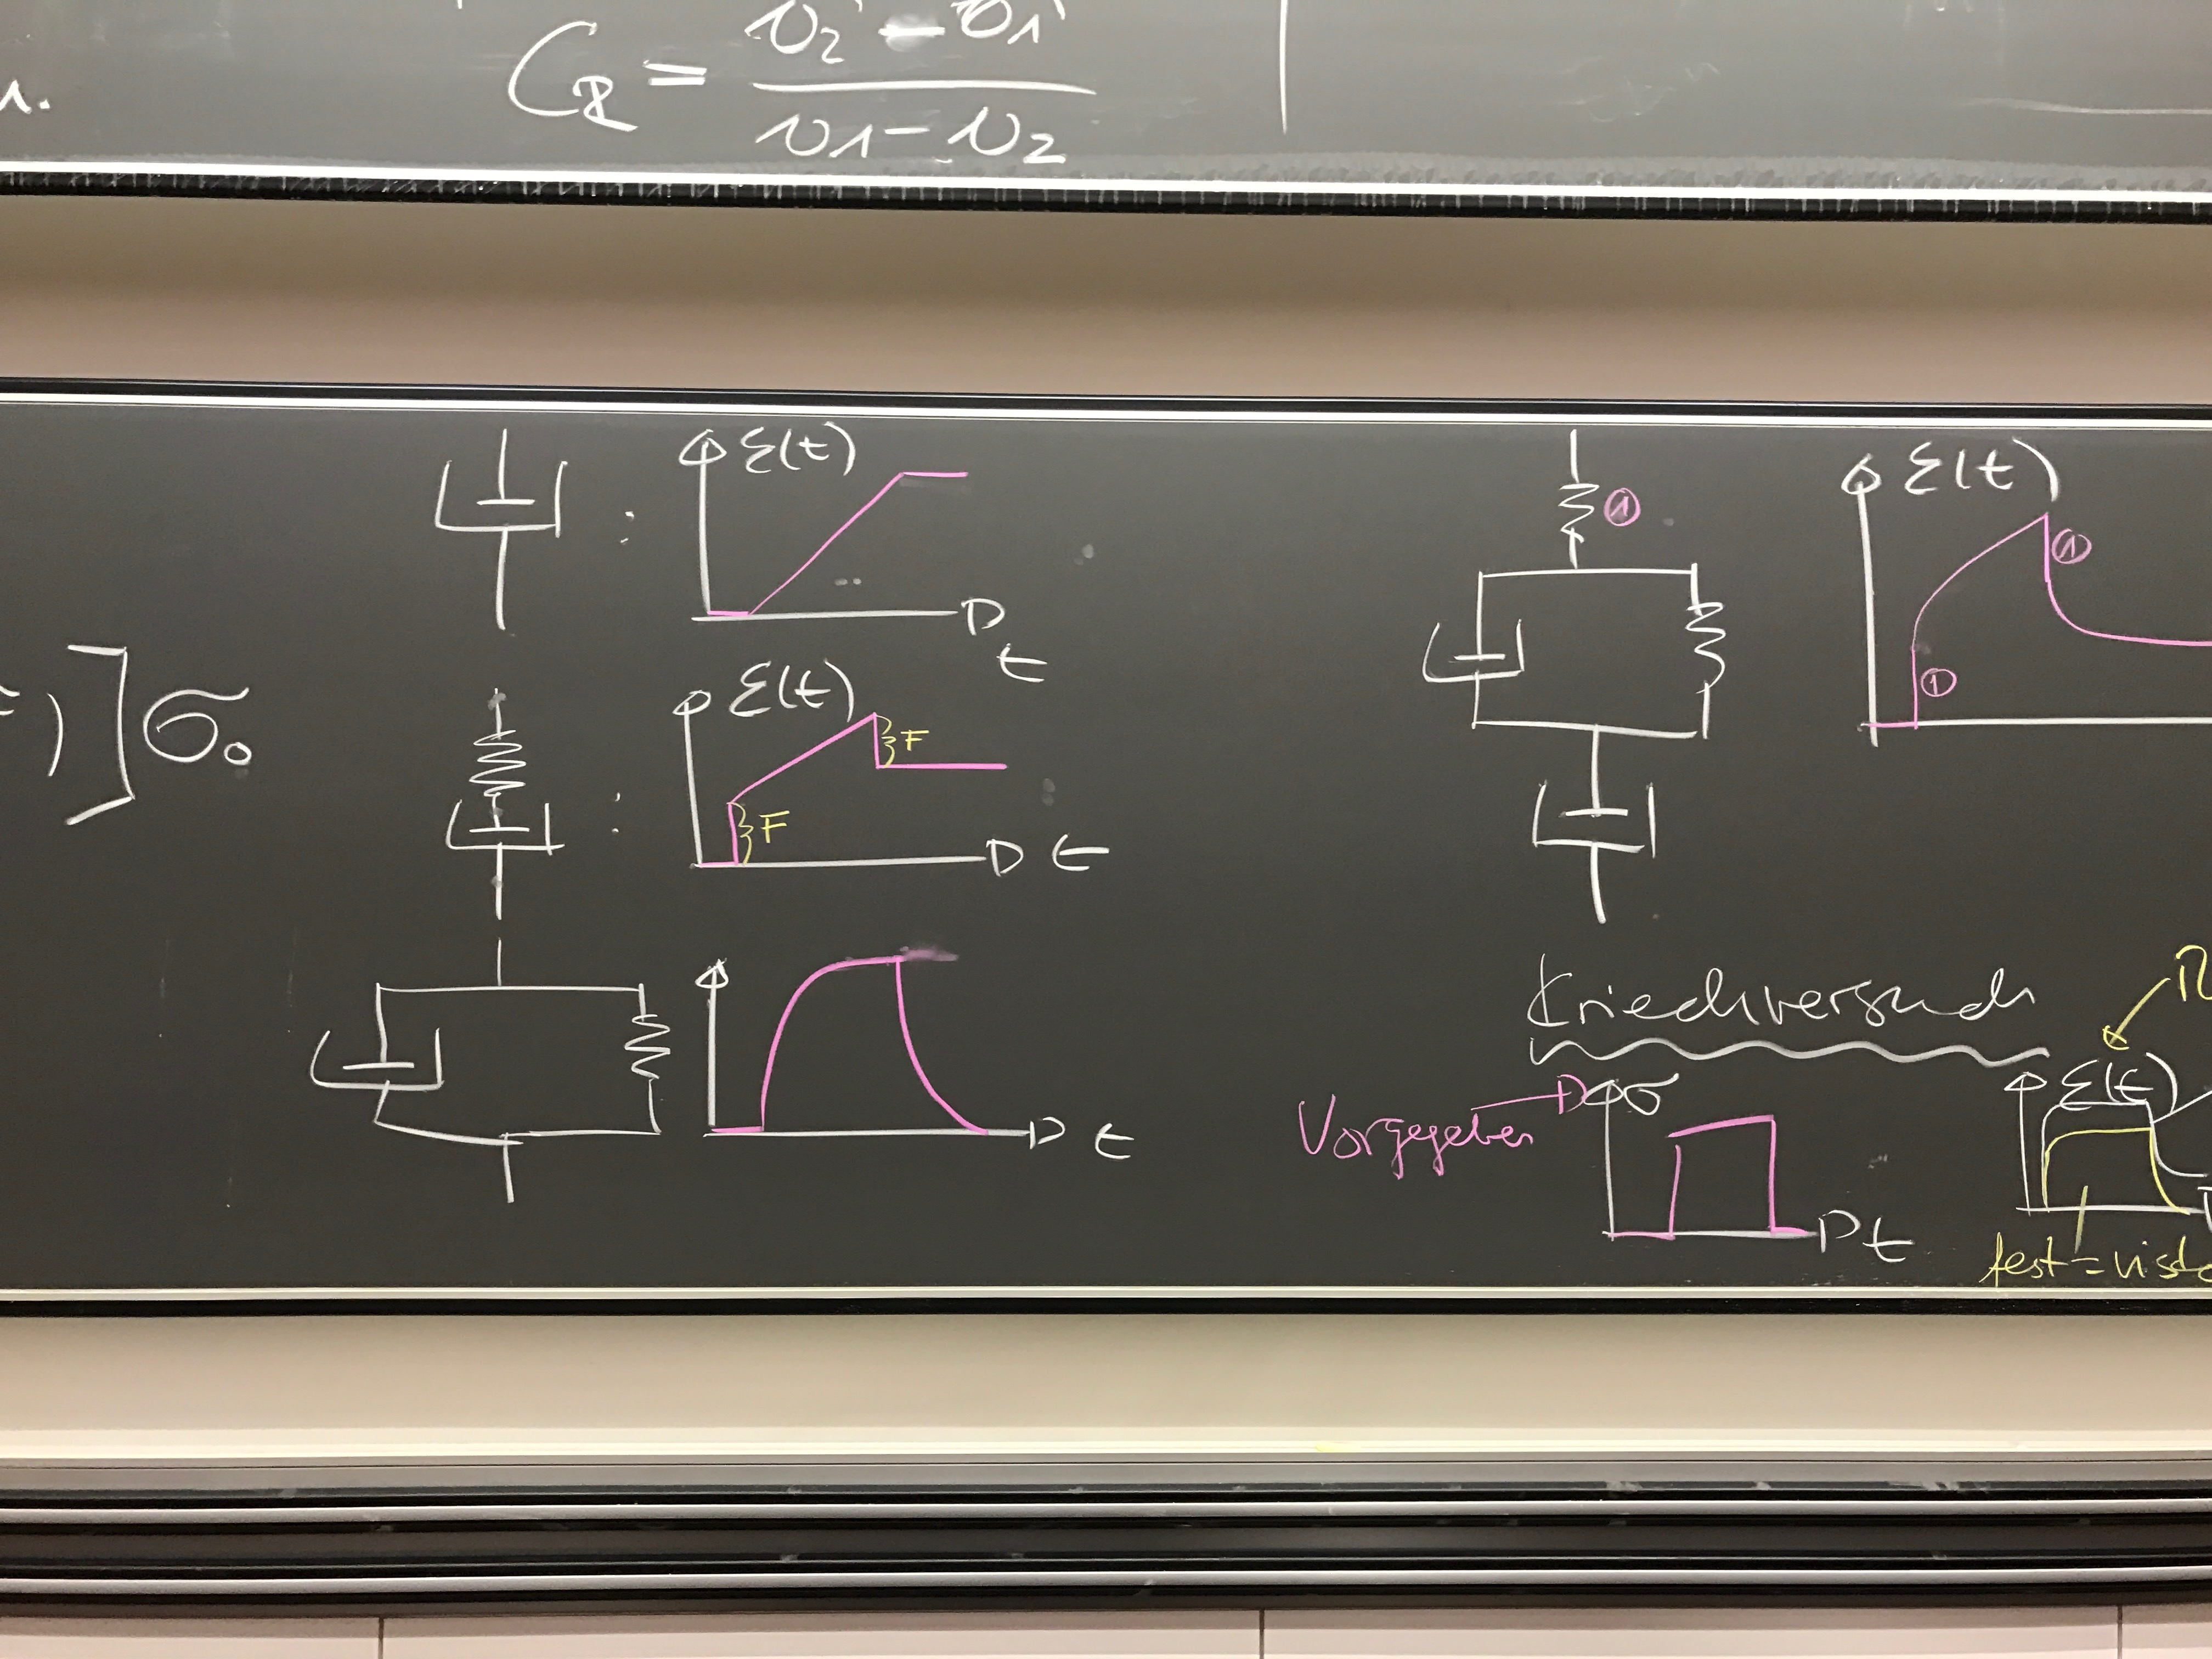 1.
C_R = (v₂' - v₁') / (v₁ - v₂)
ε(t)
:
t
) ] σ₀
ε(t)
F
:
F
t
t
①
ε(t)
①
①
Kriechversuch
Vorgegeben
σ
t
ε(t)
fest =